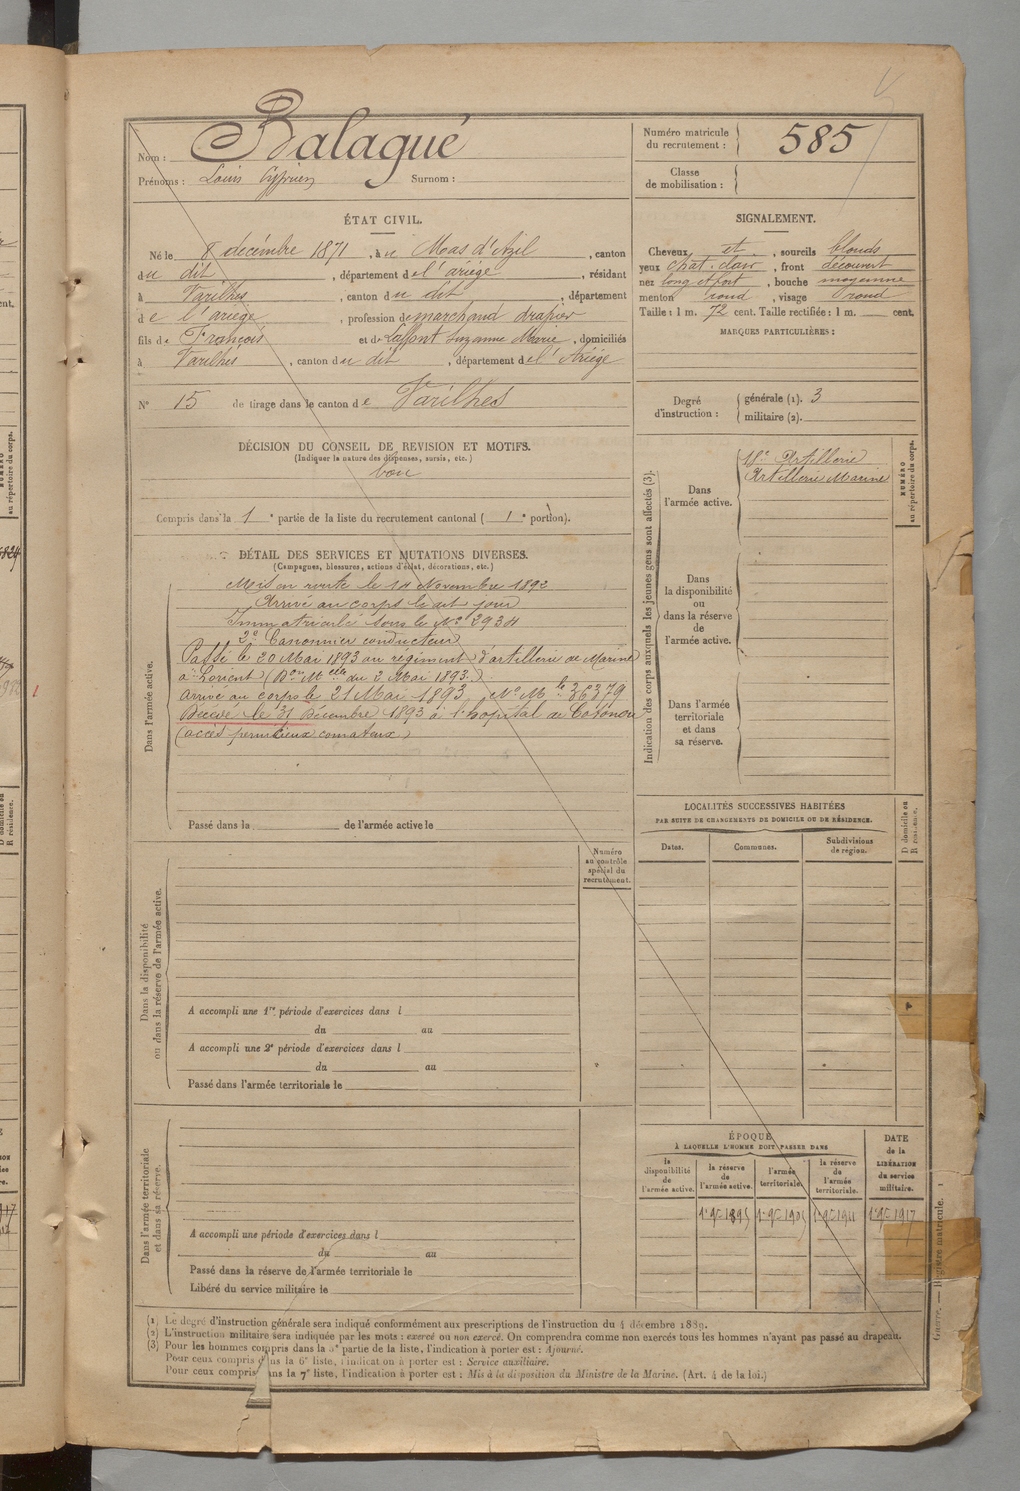 Nom : Balagué
Prénoms : Louis Cyprien Surnom :
Numéro matricule du recrutement : 585
Classe de mobilisation :
ÉTAT CIVIL.
Né le 8 décembre 1871, à u Mas d'Azil, canton
du dit, département de l'ariège, résidant
à Varilhes, canton du dit, département
de l'ariège, profession de marchand drapier
fils de François et de Laffont Suzanne Marie, domiciliés
à Varilhes, canton du dit, département de l'Ariège
N° 15 de tirage dans le canton de Varilhes
SIGNALEMENT.
Cheveux et, sourcils blonds
yeux chat. clair, front découvert
nez long et fort, bouche moyenne
menton rond, visage rond
Taille : 1 m. 72 cent. Taille rectifiée : 1 m. cent.
MARQUES PARTICULIÈRES :
Degré d'instruction : générale (1). 3
militaire (2).
DÉCISION DU CONSEIL DE REVISION ET MOTIFS.
(Indiquer la nature des dispenses, sursis, etc.)
bon
Compris dans la 1e partie de la liste du recrutement cantonal ( 1e portion).
DÉTAIL DES SERVICES ET MUTATIONS DIVERSES.
(Campagnes, blessures, actions d'éclat, décorations, etc.)
Dans l'armée active.
Mis en route le 14 Novembre 1892
Arrivé au corps le dit jour
Immatriculé sous le N° 2934
2e Canonnier conducteur
Passé le 20 Mai 1893 au régiment d'artillerie de Marine
à Lorient (Don Mlle du 2 Mai 1893.)
arrivé au corps le 21 Mai 1893, N° Mle 36379
Décédé le 31 Décembre 1893 à l'hopital de Cotonou
(accès pernicieux comateux)
Passé dans la de l'armée active le
Indication des corps auxquels les jeunes gens sont affectés (3).
Dans l'armée active.
18e Artillerie
Artillerie Marine
NUMÉRO au répertoire du corps.
Dans la disponibilité ou dans la réserve de l'armée active.
Dans l'armée territoriale et dans sa réserve.
LOCALITÉS SUCCESSIVES HABITÉES
PAR SUITE DE CHANGEMENTS DE DOMICILE OU DE RÉSIDENCE.
Dates. Communes. Subdivisions de région.
D domicile ou R résidence.
Numéro au contrôle spécial du recrutement.
Dans la disponibilité ou dans la réserve de l'armée active.
A accompli une 1re période d'exercices dans l
du au
A accompli une 2e période d'exercices dans l
du au
Passé dans l'armée territoriale le
Dans l'armée territoriale et dans sa réserve.
A accompli une période d'exercices dans l
du au
Passé dans la réserve de l'armée territoriale le
Libéré du service militaire le
ÉPOQUE
À LAQUELLE L'HOMME DOIT PASSER DANS
la disponibilité de l'armée active. la réserve de l'armée active. l'armée territoriale. la réserve de l'armée territoriale.
DATE de la LIBÉRATION du service militaire.
1 9bre 1895 1 9bre 1905 1 9bre 1911 1 9bre 1917
(1) Le degré d'instruction générale sera indiqué conformément aux prescriptions de l'instruction du 4 décembre 1889.
(2) L'instruction militaire sera indiquée par les mots : exercé ou non exercé. On comprendra comme non exercés tous les hommes n'ayant pas passé au drapeau.
(3) Pour les hommes compris dans la 5e partie de la liste, l'indication à porter est : Ajourné.
Pour ceux compris dans la 6e liste, l'indication à porter est : Service auxiliaire.
Pour ceux compris dans la 7e liste, l'indication à porter est : Mis à la disposition du Ministre de la Marine. (Art. 4 de la loi.)
Guerre. — Registre matricule. 1